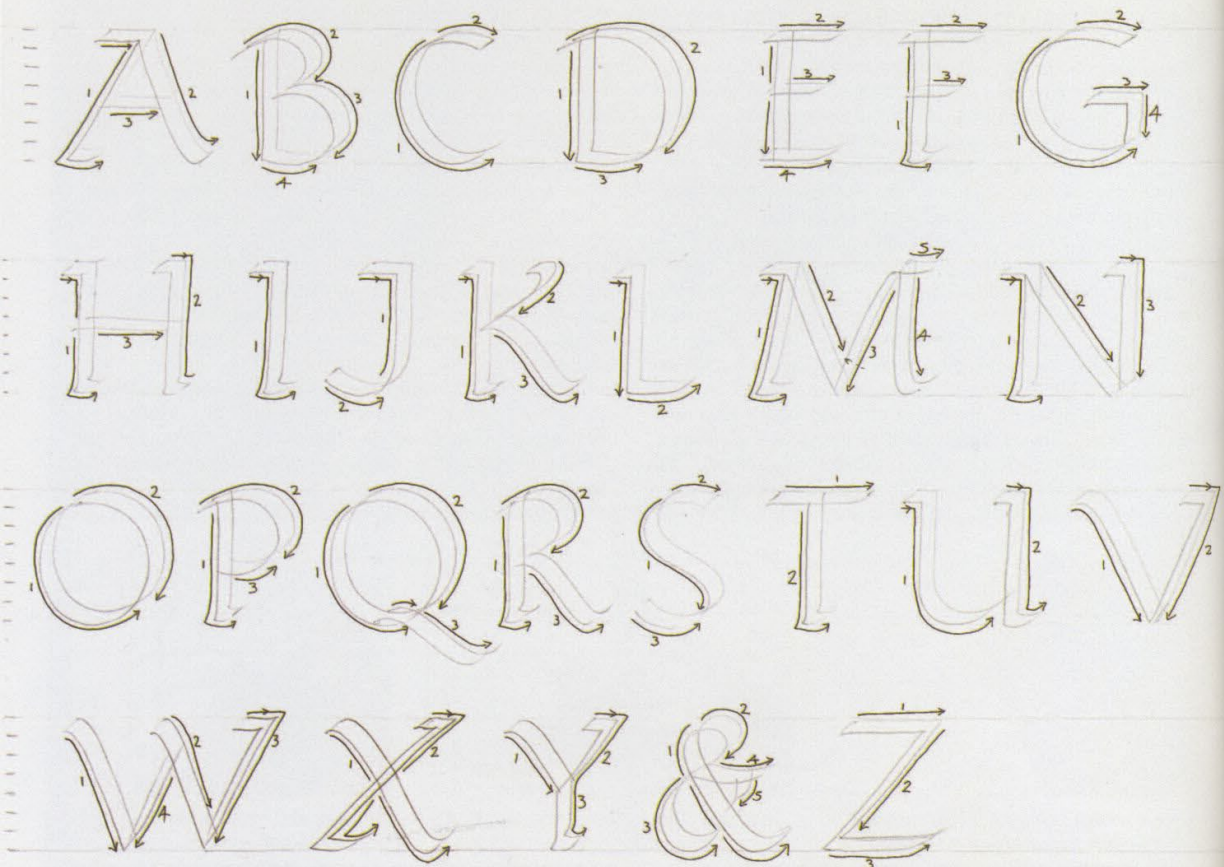 A B C D E F G
H I J K L M N
O P Q R S T U V
W X Y & Z